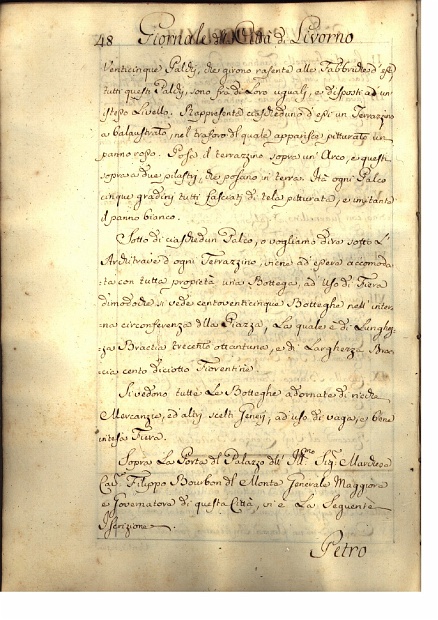 48 Giornale della Città di Livorno
Venticinque Palchj, che girono rasente alle Fabbriche, e
tutti questi Palchj, sono fra di Loro ugualj, e disposti ad un'
istesso Livello. Rappresenta ciascheduno d'essi un Terrazzino
a balaustrato, nel traforo del quale apparisce pitturato un
panno rosso. Posa il terrazzino sopra un' Arco, e questi
sopra a due pilastrj, che posano in terra. Hà ogni Palco
cinque gradinj tutti fasciati di tela pitturata, e
il panno bianco.
Sotto di ciaschedun Palco, o vogliamo dire sotto L'
Architrave d'ogni Terrazzino, viene ad essere accomoda-
ta con tutta proprietà una Bottega, ad uso di Fiera
dimodoche si vede centoventicinque Botteghe nell' inter-
na circonferenza della Piazza, La quale è di Lunghez-
za Braccia trecento ottantuna, e di Larghezza Brac-
cia cento diciotto Fiorentine.
Si vedono tutte Le Botteghe adornate di ricche
Mercanzie, ed altrj scelti Generj, ad uso di vaga, e bene
intesa Fiera.
Sopra La Porta del Palazzo dell' Ill.mo Sig. Marchese
Cav. Filippo Bourbon del Monte Generale Maggiore
e Governatore di questa Città, vi è La Seguente
Iscrizione
Petro